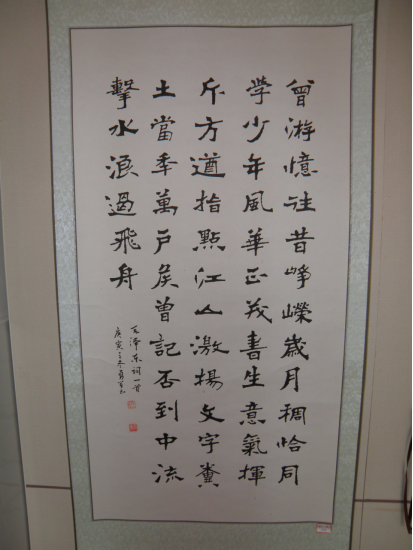 曾游憶往昔崢嶸歲月稠恰同
学少年風華正茂書生意氣揮
斥方遒指點江山激揚文字糞
土當年萬戶侯曾記否到中流
擊水浪遏飛舟
毛澤东詞一首
庚寅之冬